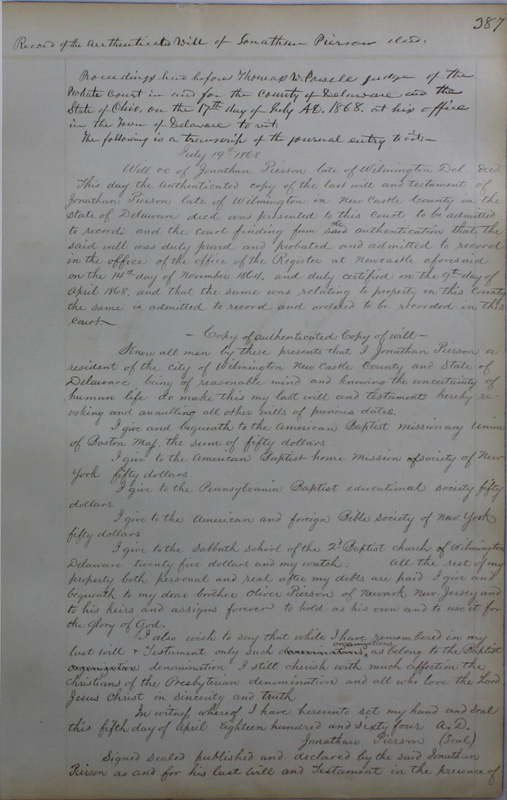 387
Record of the Authenticated Will of Jonathan Pierson decd.
Proceedings had before Thomas W. Powell Judge of the
Probate Court in and for the County of Delaware and the
State of Ohio, on the 17th day of July A.D. 1868. at his office
in the Town of Delaware to wit:
The following is a transcript of the journal entry to wit:-
July 19th 1868
Will &c of Jonathan Pierson late of Wilmington Del. Decd
This day the authenticated copy of the last will and testament of
Jonathan Pierson late of Wilmington in New Castle County in the
State of Delaware decd was presented to this court to be admitted
to record and the court finding from the said authentication that the
said will was duly proved and probated and admitted to record
in the office of the office of the Register at Newcastle aforesaid
on the 14th day of November 1864. and duly certified on the 9th day of
April 1868. and that the same was relating to property in this County
the same is admitted to record and ordered to be recorded in this
Court
- Copy of authenticated Copy of will -
Know all men by these presents that I Jonathan Pierson a
resident of the city of Wilmington New Castle County and State of
Delaware being of reasonable mind and knowing the uncertainty of
human life do make this my last will and testament hereby re
voking and annulling all other wills of previous dates.
I give and bequeath to the American Baptist missionary Union
of Boston Mass. the sum of fifty dollars
I give to the American Baptist home Mission society of New
York fifty dollars.
I give to the Pennsylvania Baptist educational society fifty
dollars.
I give to the American and foreign Bible Society of New York
fifty dollars
I give to the Sabbath school of the 2d Baptist church of Wilmington
Delaware twenty five dollars and my watch. All the rest of my
property both personal and real after my debts are paid I give and
bequeath to my dear brother Oliver Pierson of Newark New Jersey and
to his heirs and assigns forever to hold as his own and to use it for
the glory of God.
I also wish to say that while I have remembered in my
last will & Testament only such organizations as belong to the Baptist
denomination I still cherish with much affection the
Christians of the Presbyterian denomination and all who love the Lord
Jesus Christ in sincerity and truth
In witness whereof I have hereunto set my hand and seal
this fifth day of April eighteen hundred and sixty four A.D.
Jonathan Pierson (Seal)
Signed sealed published and declared by the said Jonathan
Pierson as and for his last will and Testament in the presence of